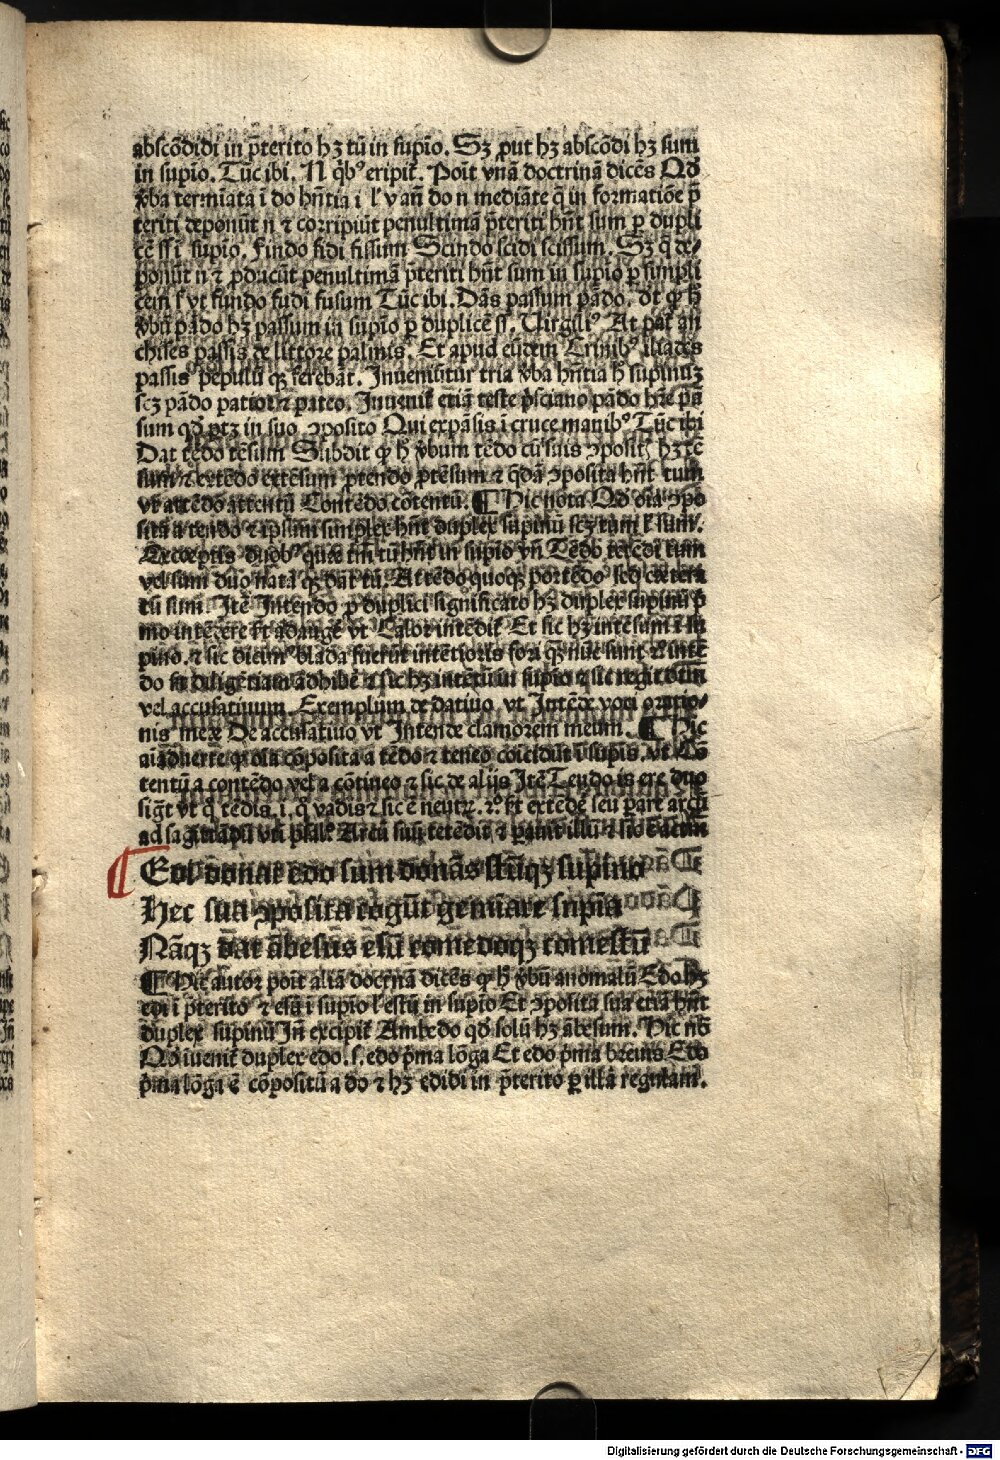 abscōdidi in p̄terito hꝫ tū in supīo. Sꝫ ꝓut hꝫ abscōdi hꝫ sum
in supīo. Tūc ibi. N q̄bꝰ eripit̄. Poīt vnā doctrinā dicēs Qđ
v̄ba termīata ī do hn̄tia i l' v an̄ do n mediāte q̄ in formatiōe p̄
teriti deponūt n ⁊ corripiūt penultimā p̄teriti hn̄t sum p̱ dupli
cē ss ī supīo. Findo fidi fissum Scindo scidi scissum. Sꝫ q̄ de⸗
ponūt n ⁊ ꝓducūt penultimā p̄teriti hn̄t sum in supīo p̱ simpli
cem s vt fundo fudi fusum Tūc ibi. Dās passum pādo. dt̄ ꝙ h̄
v̄bū pādo hꝫ passum in supīo p̱ duplicē ss. Uirgiliꝰ. At pat̄ an
chises passis de littore palmis. Et apud eūdem Crinibꝰ iliades
passis peplū qꝫ ferebāt. Inueniūtur tria v̄ba hn̄tia h̄ supinuꝫ
scꝫ pādo patior ⁊ pateo. Inuenit̄ etiā teste p̄sciano pādo hr̄e pā
sum qđ ptꝫ in suo ꝯposito Qui expāsis ī cruce manibꝰ Tūc ibi
Dat tēdo tēsum Subdit ꝙ h̄ v̄bum tēdo cū suis ꝯposit̄ hꝫ tē
sum ⁊ extēdo extēsum ꝓtendo ꝓtēsum ⁊ q̄dā ꝯposita hn̄t tum
vt attēdo attentū Contēdo cōtentū. ¶ Hic nota Qđ oīa ꝯpo
sita a tendo ⁊ ipsum simplex hn̄t duplex supinū scꝫ tum ⁊ sum.
Exceptis duobꝰ que tm̄ tū hn̄t in supīo vn̄ Tēdo tetēdi tum
vel sum duo nata qꝫ dāt tū. Attēdo quoqꝫ portēdo sed cetera
tū sum. Itē Intendo p̱ duplici significato hꝫ duplex supinū p̄
mo
pino. ⁊ sic dicimꝰ blada fuerūt intēsioris fori qꝫ nūc sunt
do
vel accusatiuum. Exemplum de datiuo. vt Intēde voci oratio⸗
nis mee De accusatiuo vt Intende clamorem meum. ¶ Hic
aīaduerte ꝙ oīa cōposita a tēdo ⁊ teneo coīcidūt ī supīs. vt Cō
tentū a contēdo vel a cōtineo ⁊ sic de alijs Itē Tendo is ere duo
sigt̄ vt q̄ tēdis .i. q̄ vadis ⁊ sic ē neutꝝ. ⁊
ad
Edi donat edo sum donās stūqꝫ supino
Hec sua ꝯposita cogūt geminare supīa
Nāqꝫ dat ābesus esū comedoqꝫ comestū
¶ Hic autor poīt aliā doctrinā dicēs ꝙ h̄ v̄bū anomalū Edo hꝫ
edi ī p̄terito ⁊ esū ī supīo l' estū in supīo Et ꝯposita sua etiā hn̄t
duplex supinū Jn̄ excipit̄ Ambedo qđ solū hꝫ ābesum. Hic nō
Qđ īuenit̄ duplex edo. s. edo p̄ma lōga Et edo p̄ma breuis Edo
p̄ma lōga ē cōpositū a do ⁊ hꝫ edidi in p̄terito p̱ illā regulam.
Digitalisierung gefördert durch die Deutsche Forschungsgemeinschaft - DFG